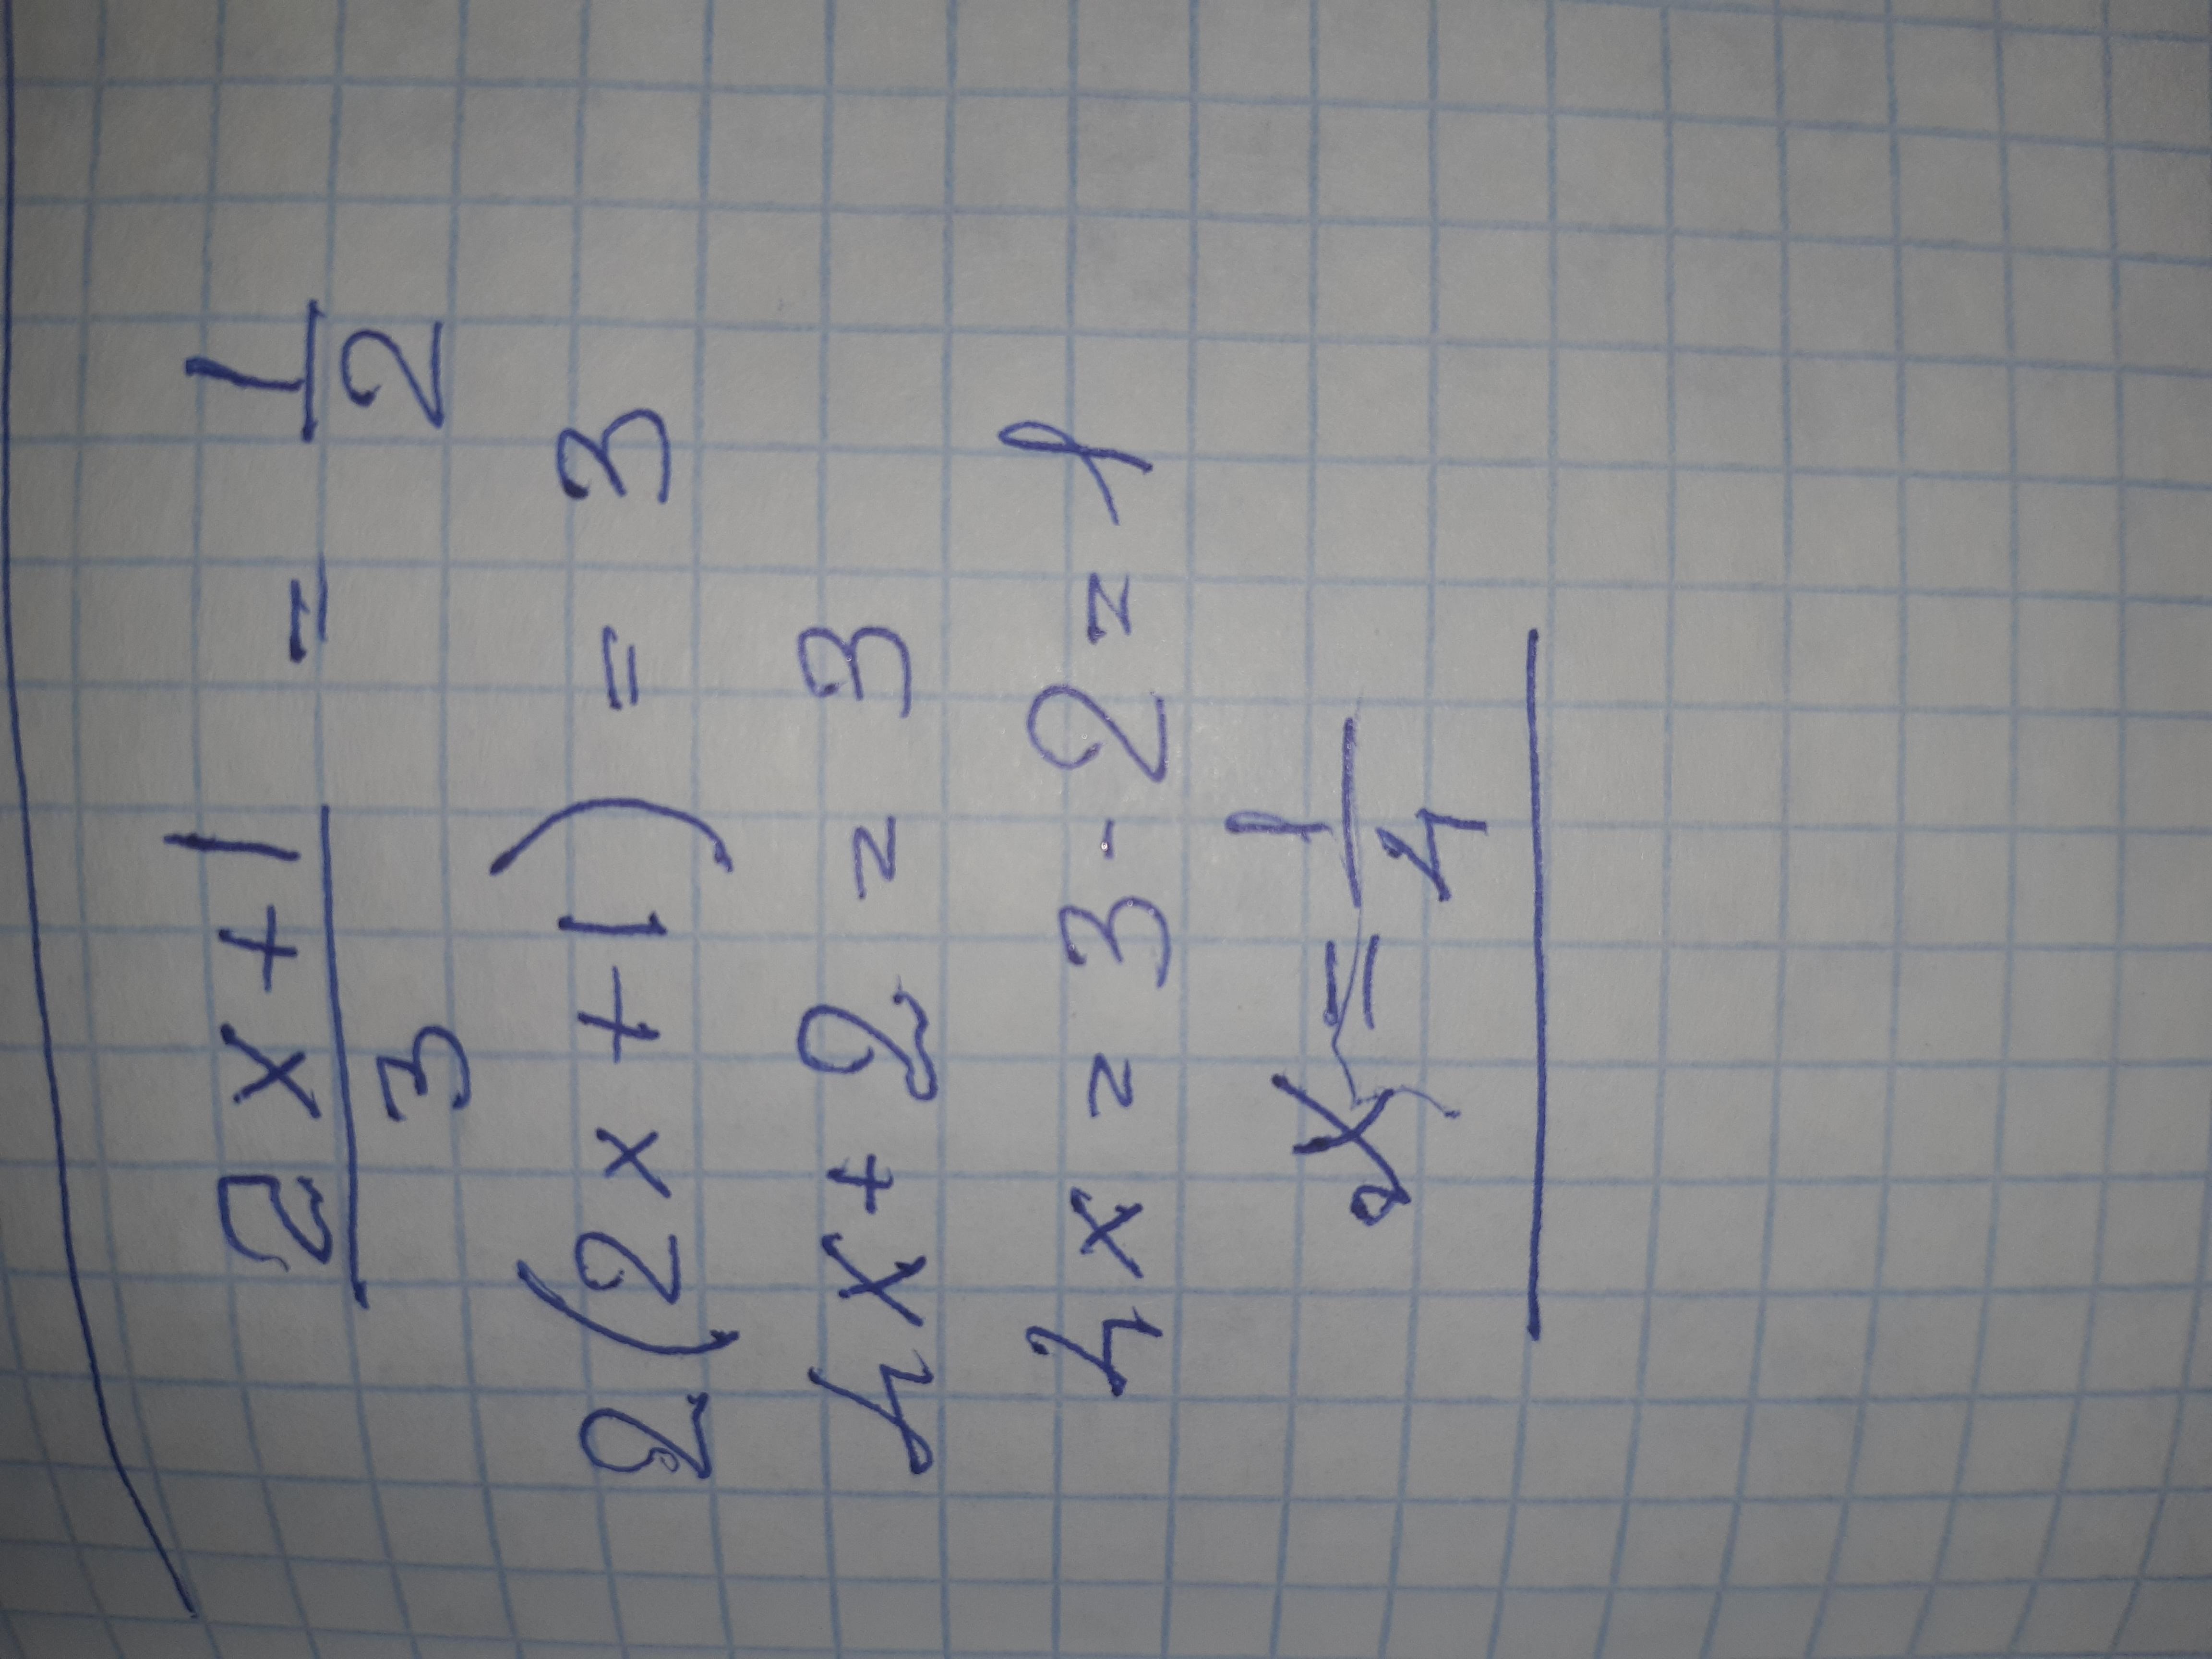 (2x+1)/3 = 1/2
2(2x+1) = 3
4x+2=3
4x=3-2=1
x=1/4